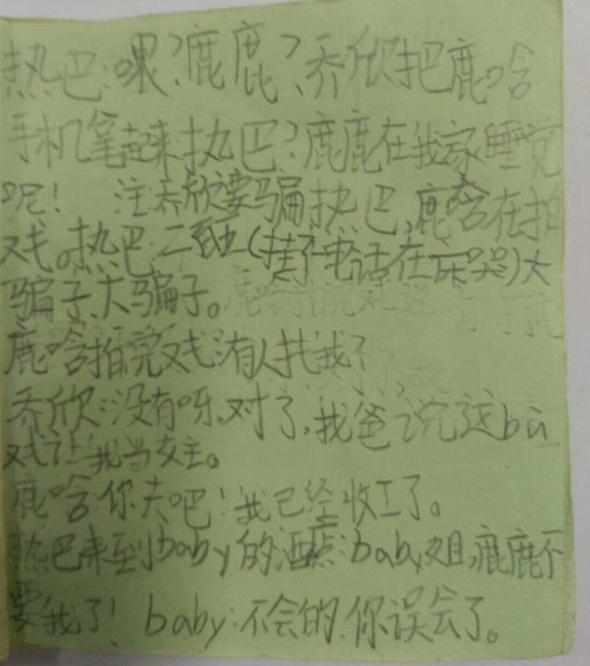 热巴:喂?鹿鹿?乔欣把鹿哈
手机拿起来热巴?鹿鹿在我家睡觉
呢! 注:乔欣要骗热巴,鹿哈在拍
戏。热巴:(挂了电话在床哭)大
骗子、大骗子。
鹿哈拍完戏:有人找我?
乔欣:没有呀,对了,我爸说这bù
戏让我当女主。
鹿哈:你去吧!我已经收工了。
热巴来到baby的酒店:baby姐,鹿鹿不
要我了! baby:不会的,你误会了。